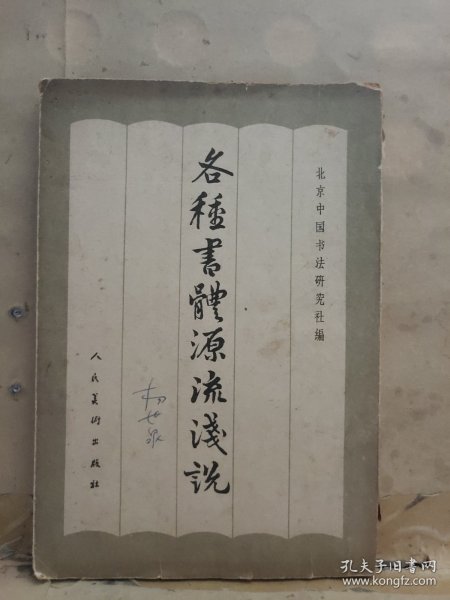 北京中国书法研究社編
各種書體源流淺說
人民美術出版社
孔夫子旧书网
www.kongfz.com